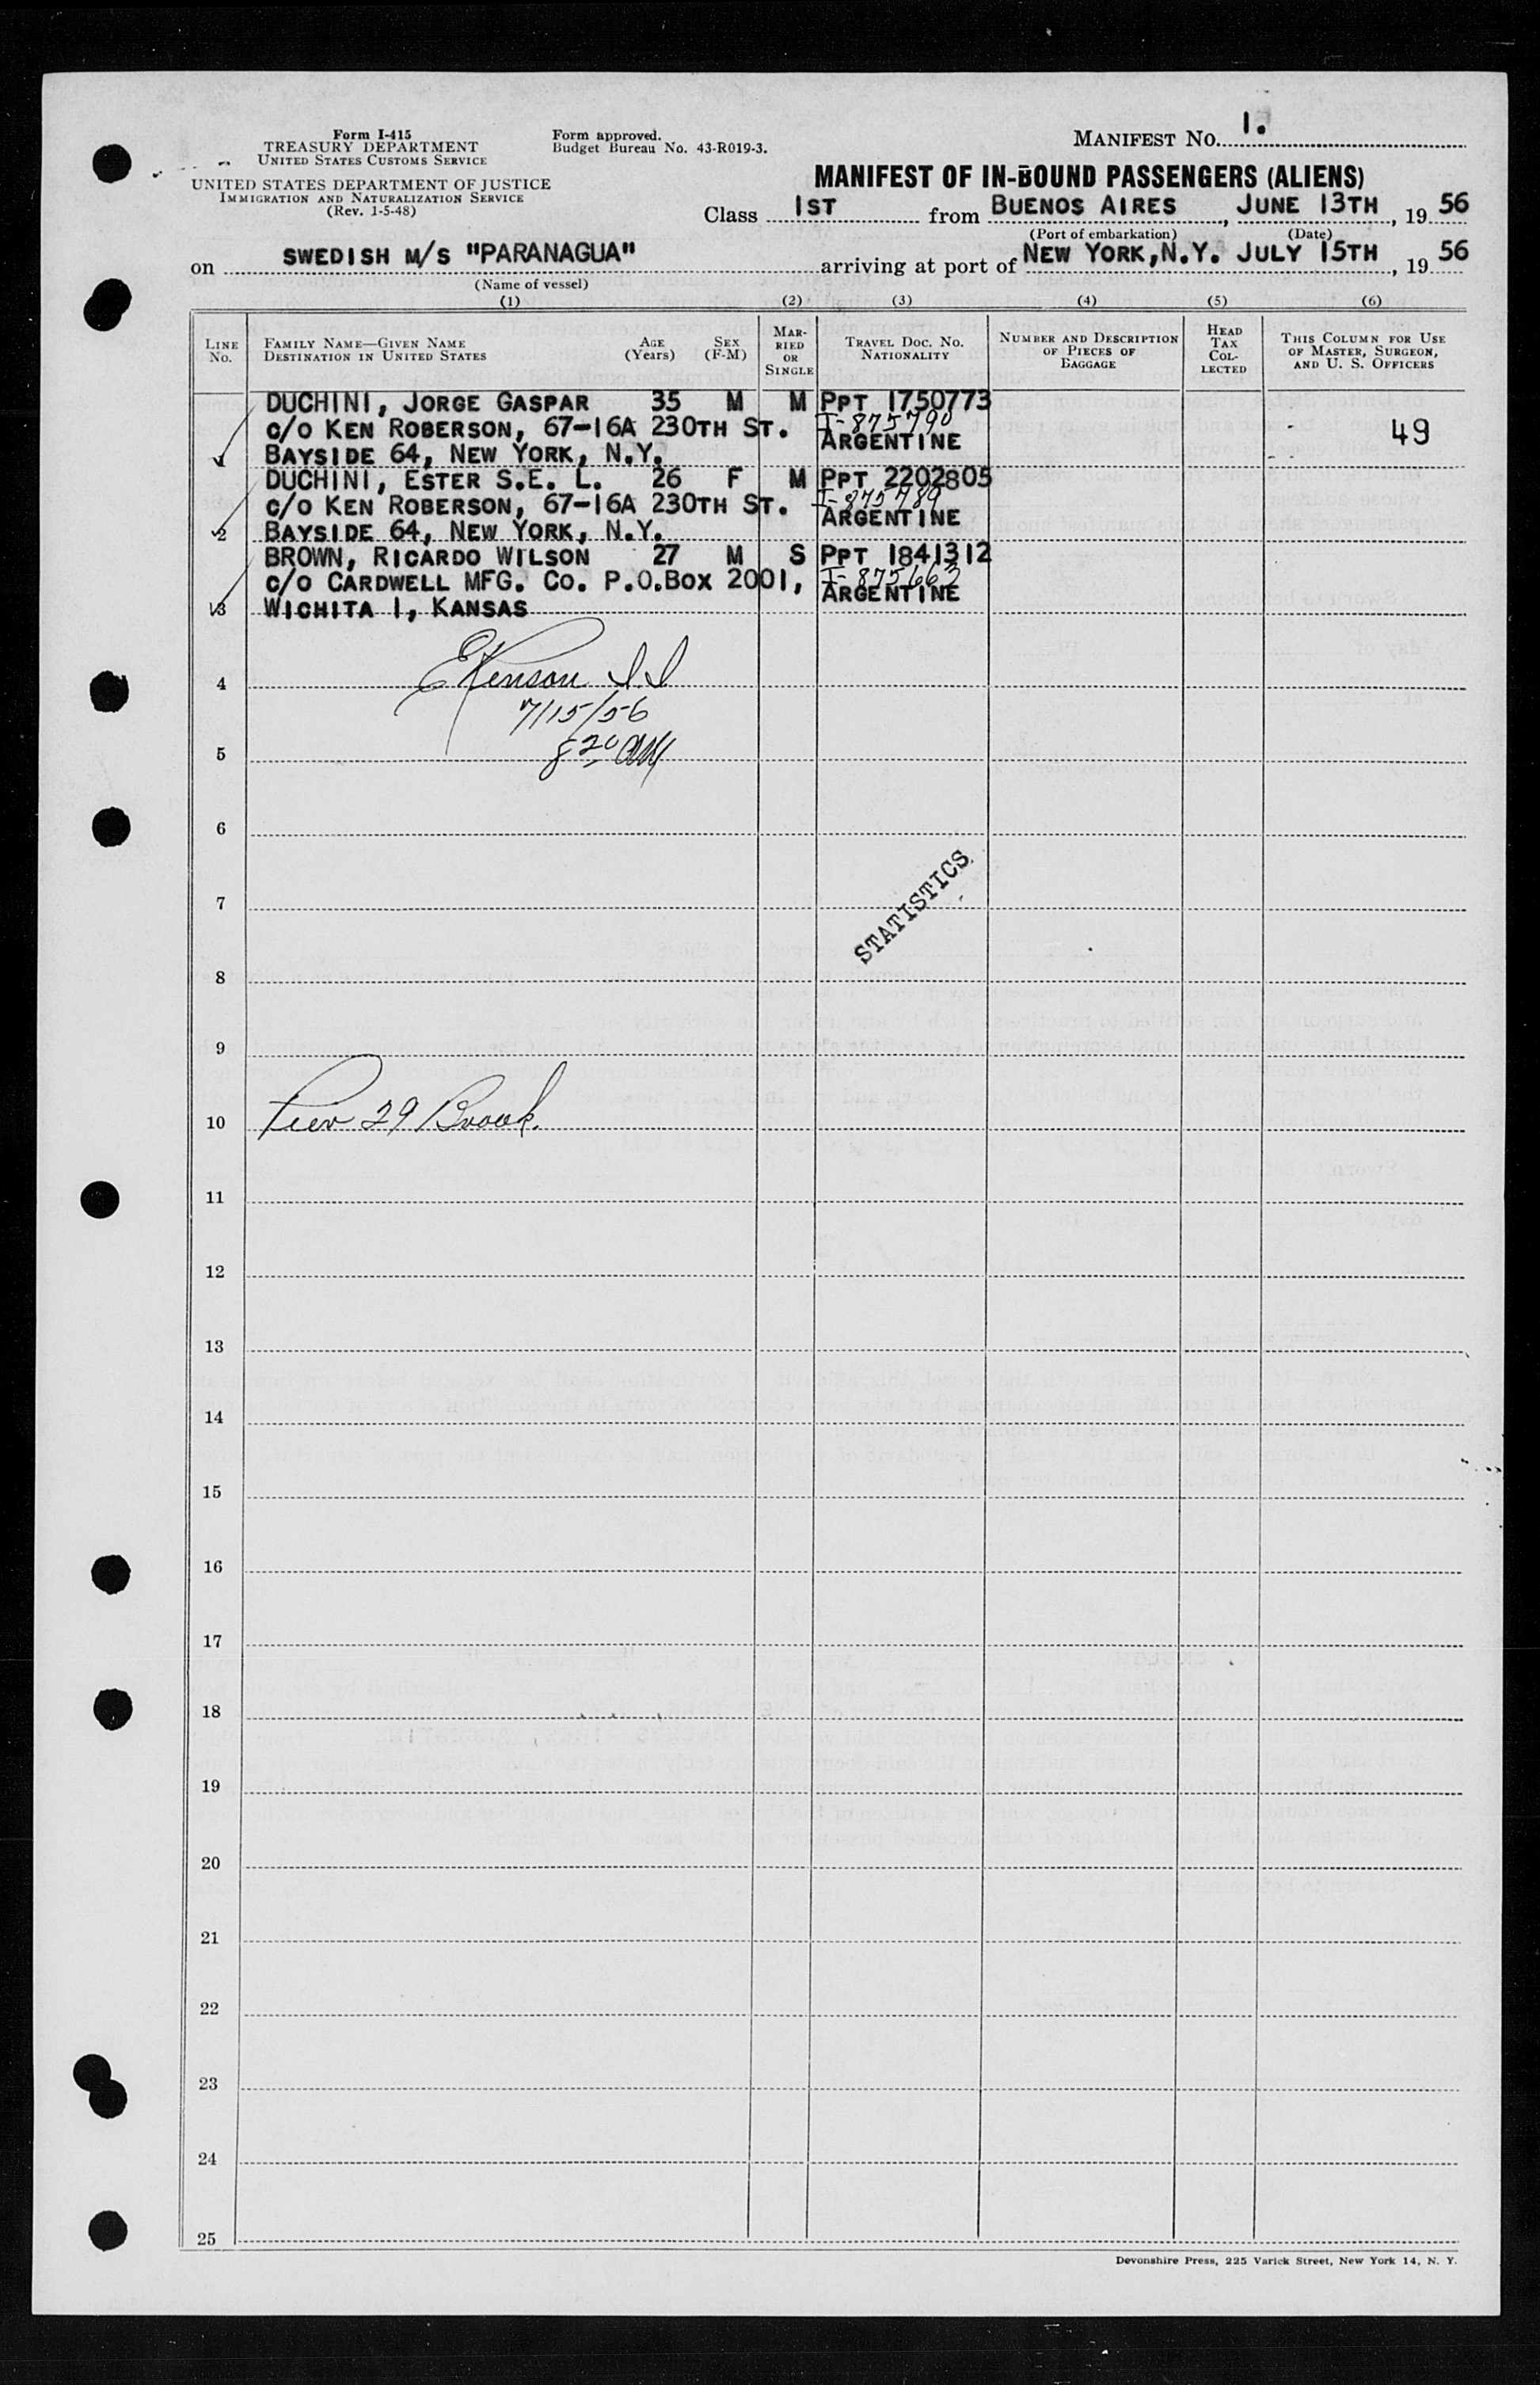 Form I-415
TREASURY DEPARTMENT
UNITED STATES CUSTOMS SERVICE
UNITED STATES DEPARTMENT OF JUSTICE
IMMIGRATION AND NATURALIZATION SERVICE
(Rev. 1-5-48)
Form approved.
Budget Bureau No. 43-R019-3.
MANIFEST No. 1.
MANIFEST OF IN-BOUND PASSENGERS (ALIENS)
Class 1ST from BUENOS AIRES, JUNE 13TH, 19 56
(Port of embarkation) (Date)
on SWEDISH M/S "PARANAGUA" arriving at port of NEW YORK, N.Y. JULY 15TH, 19 56
(Name of vessel)
(1) (2) (3) (4) (5) (6)
LINE No. FAMILY NAME—GIVEN NAME DESTINATION IN UNITED STATES AGE (Years) SEX (F-M) MARRIED OR SINGLE TRAVEL DOC. NO. NATIONALITY NUMBER AND DESCRIPTION OF PIECES OF BAGGAGE HEAD TAX COLLECTED THIS COLUMN FOR USE OF MASTER, SURGEON, AND U. S. OFFICERS
DUCHINI, JORGE GASPAR 35 M M PPT 1750773
c/o KEN ROBERSON, 67-16A 230TH ST. I-875790 49
1 BAYSIDE 64, NEW YORK, N.Y. ARGENTINE
DUCHINI, ESTER S.E. L. 26 F M PPT 2202805
c/o KEN ROBERSON, 67-16A 230TH ST. I-875789
2 BAYSIDE 64, NEW YORK, N.Y. ARGENTINE
BROWN, RICARDO WILSON 27 M S PPT 1841312
c/o CARDWELL MFG. CO. P.O.BOX 2001, I-875663
3 WICHITA 1, KANSAS ARGENTINE
4
7/15/56
5 8 20 AM
6
7
STATISTICS
8
9
10 Pier 29 Brook.
11
12
13
14
15
16
17
18
19
20
21
22
23
24
25
Devonshire Press, 225 Varick Street, New York 14, N. Y.